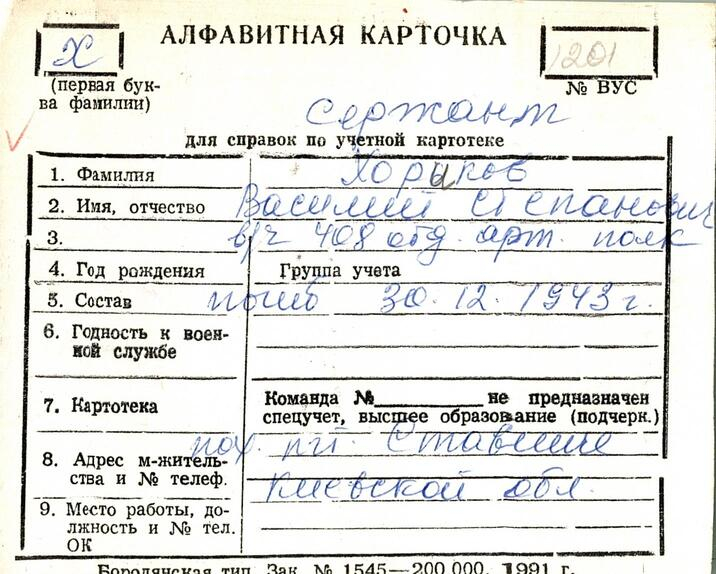 Х
АЛФАВИТНАЯ КАРТОЧКА
1201
(первая бук-
ва фамилии)
№ ВУС
Сержант
для справок по учетной картотеке
1. Фамилия Хорьков
2. Имя, отчество Василий Степанович
3. в/ч 408 отд. арт. полк
4. Год рождения Группа учета
5. Состав погиб 30.12.1943 г.
6. Годность к воен-
ной службе
7. Картотека
Команда № не предназначен
спецучет, высшее образование (подчерк.)
пох. пгт. Ставище
8. Адрес м-житель-
ства и № телеф.
Киевской обл.
9. Место работы, до-
лжность и № тел.
ОК
Бородянская тип. Зак. № 1545—200 000. 1991 г.